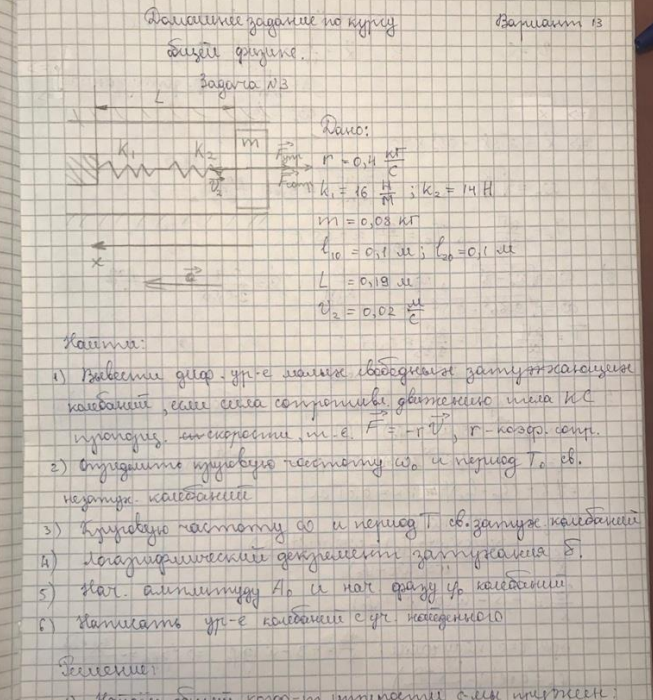 Домашнее задание по курсу Вариант 13
общей физике.
Задача №3
L
K₁ K₂ m
x
Дано:
r = 0,4 кг/с
k₁ = 16 Н/м ; k₂ = 14 Н
m = 0,08 кг
l₁₀ = 0,1 м ; l₂₀ = 0,1 м
L = 0,19 м
V₂ = 0,02 м/с
Найти:
1) Вывести диф. ур-е малых свободных затухающих
колебаний, если сила сопротивл. движению тела КС
пропорц. скорости, т-е. F = -rV, r - коэф. сопр.
2) Определить круговую частоту ω₀ и период T₀ св.
незатух. колебаний
3) Круговую частоту ω и период T св. затух колебаний
4) Логарифмический декремент затухания δ.
5) Нач. амплитуду A₀ и нач фазу φ₀ колебаний.
6) Написать ур-е колебаний с уч. найденного
Решение: